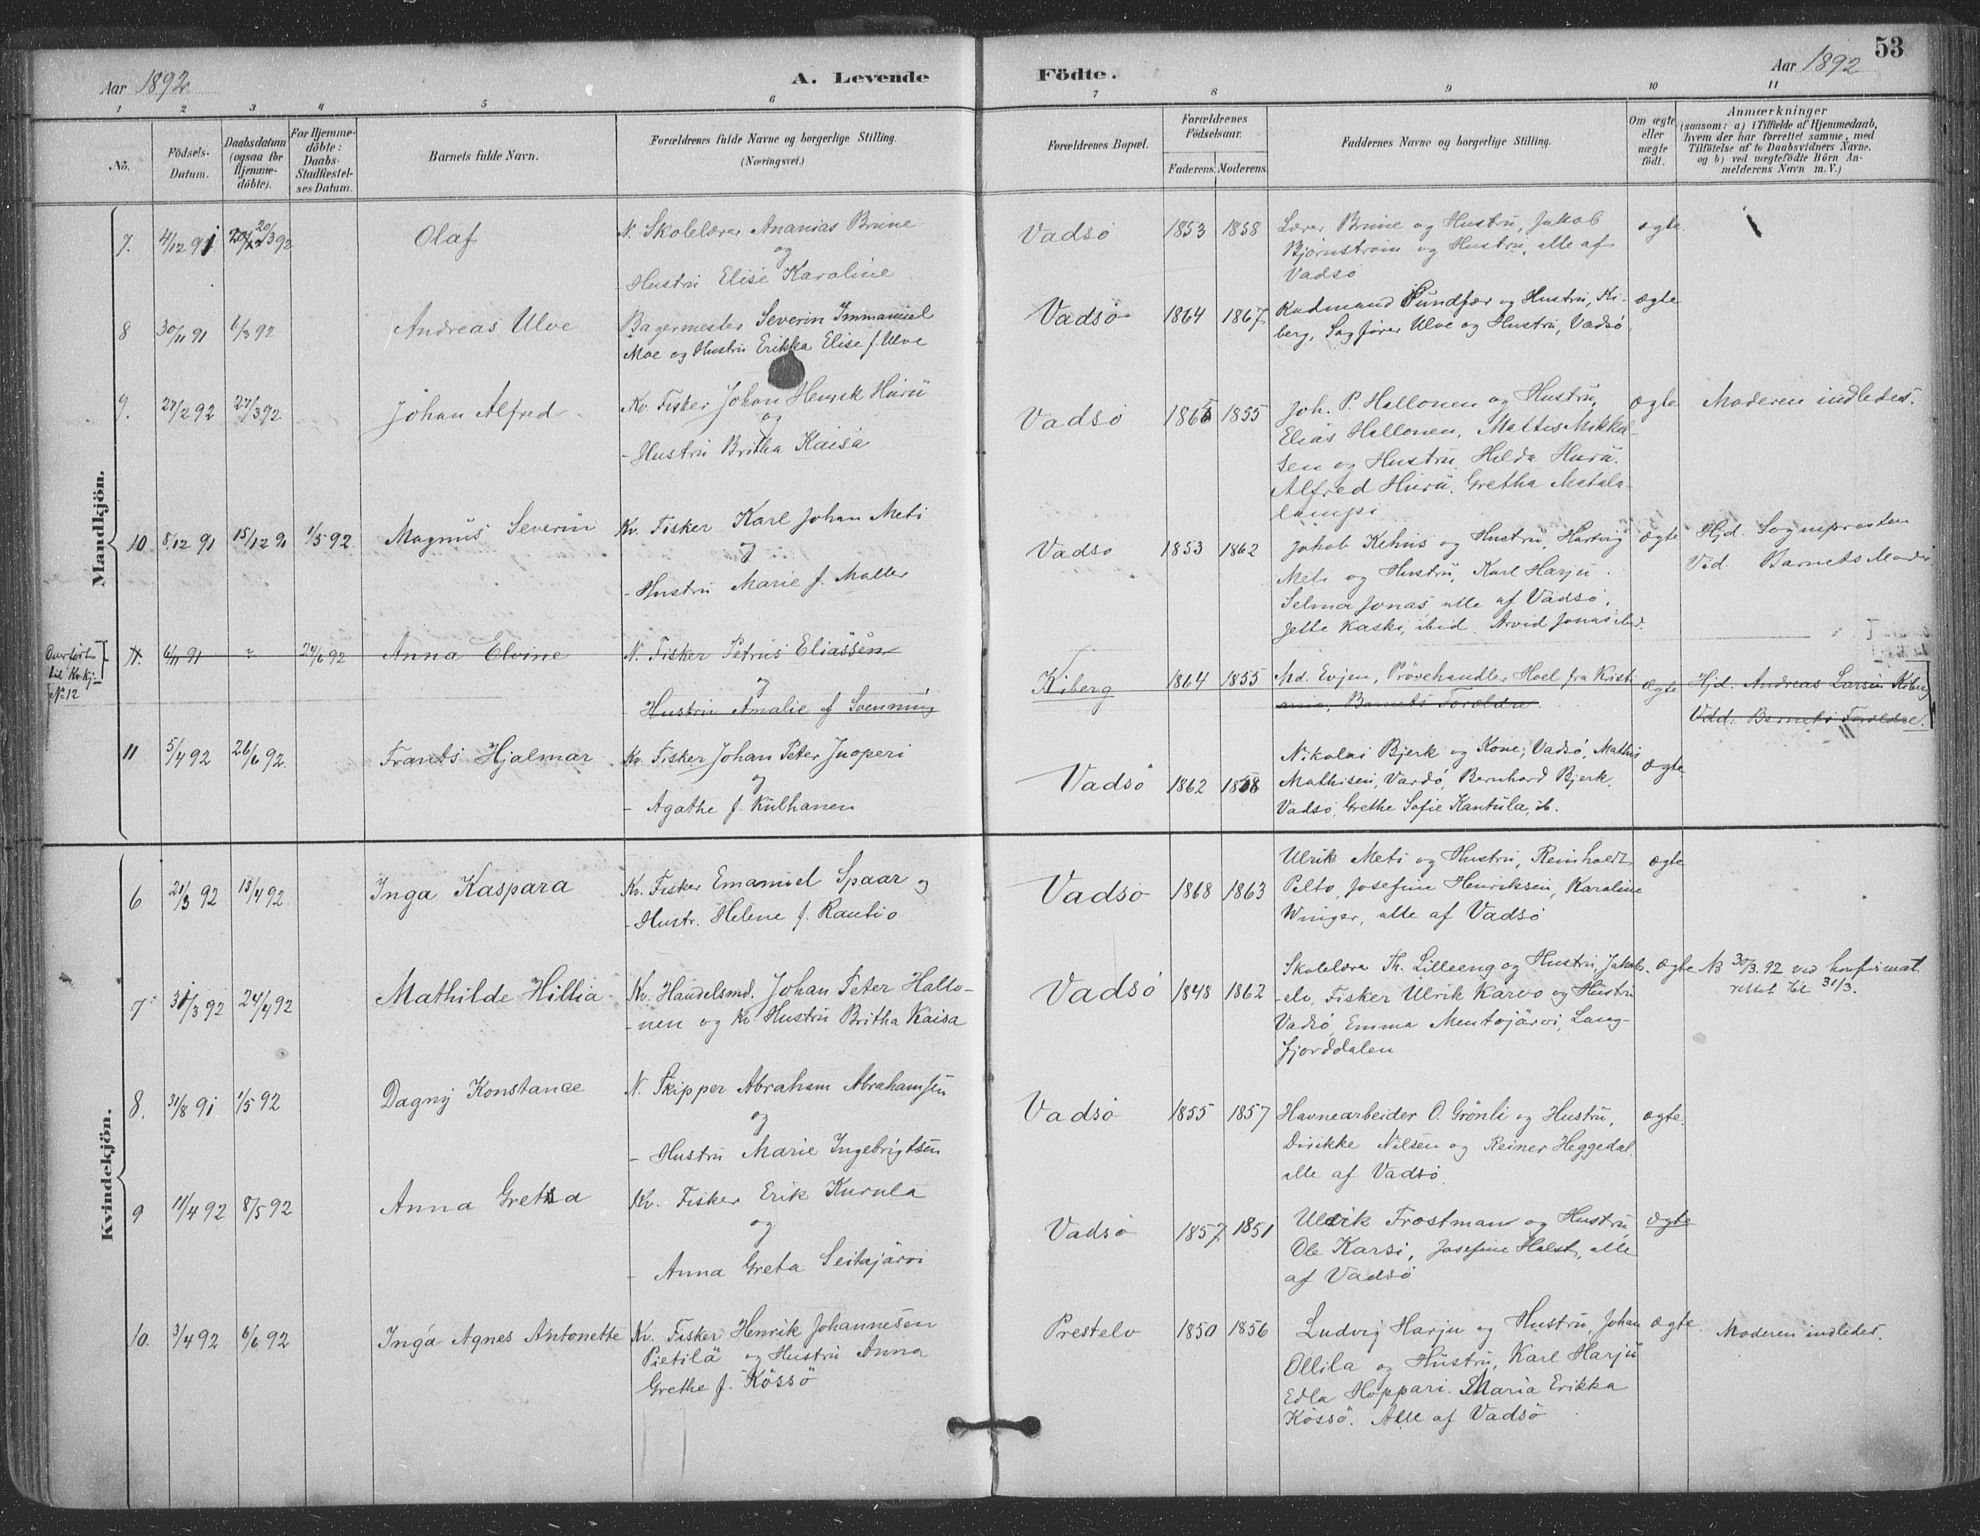 53
Aar 1892 A. Levende Födte. Aar 1892
1 2 3 4 5 6 7 8 9 10 11
No. Födsels-Datum. Daabsdatum (ogsaa for Hjemme-döbte). For Hjemme-döbte: Daabs-Stadfæstel-ses Datum. Barnets fulde Navn. Forældrenes fulde Navne og borgerlige Stilling. (Næringsvei.) Forældrenes Bopæl. Forældrenes Födselsaar. Faderens. Moderens. Faddernes Navne og borgerlige Stilling. Om ægte eller uægte födt. Anmærkninger (saasom: a) i Tilfælde af Hjemmedaab, hvem der har forrettet samme, med Tilföielse af to Daabsvidners Navne. og b) ved uægtefödte Börn An-melderens Navn m. V.)
Mandkjön.
7. 4/12 91. 20/3 92 Olaf N. Skolelærer Ananias Brune Vadsö 1853 1858 Lærer Brune og Hustru, Jakob ægte
og Bjørnstrøm og Hustru, alle af
- Hustru Elise Karoline Vadsö
8 30/11 91 6/3 92 Andreas Ulve Bagermester Severin Immanuel Vadsö 1864 1867 Kudmand Sundfær og Hustru, Ki- ægte
Moe og Hustru Erikka Elise f. Ulve berg, Sagfører Ulve og Hustru, Vadsö
9. 27/2 92 27/3 92 Johan Alfred Kv. Fisker Johan Henrik Huru Vadsö 1855 Joh. P. Hallonen og Hustru, ægte Moderen indledet.
og Elias Hallonen, Mattis Mikkel-
- Hustru Britha Kaisa sen og Hustru. Hilda Huru.
Alfred Huru. Gretha Matala-
lampi
10 8/12 91 15/12 91 1/5 92 Magnus Severin Kv. Fisker Karl Johan Meti Vadsö 1853 1862 Jakob Kehus og Hustru, Hartvig ægte Hjd. Sognepresten
og Meti og Hustru, Karl Harju. Vid. Barnets Moder
- Hustru Marie f. Møller Selma Jonas alle af Vadsö,
Jette Kaski, ibid. Arvid Jonas ibid.
Overført til Kv.kj. N. 12
11. 6/11 91 " 24/6 92 Anna Elvine N. Fisker Petrus Eliassen Kiberg 1864 1855 Md. Evjen, Prövehandler Hoel fra Kristi- ægte Hjd. Andreas Larsen Kiberg
og ania, Barnets Forældre. Vidd: Barnets Forældre.
Hustru Amalie f Svenning
11 5/4 92 26/6 92 Frants Hjalmar Kv. Fisker Johan Peter Juoperi Vadsö 1862 Nikolai Bjerk og Kone, Vadsö, Mathis ægte
og Mathisen, Vardö, Bernhard Bjerk,
- Agathe f. Külhanen Vadsö, Grethe Sofie Kantola, ib.
Kvindekjön.
6 21/3 92 18/4 92 Inga Kaspara Kv. Fisker Emanuel Spaar og Vadsö 1868 1863 Ulrik Meti og Hustru, Reinholdt ægte
- Hustr. Helene f. Rautio Pelto, Josefine Henriksen, Karoline
Winger, alle af Vadsö
7 31/3 92 24/4 92 Mathilde Hillia Kv. Handelsmd. Johan Peter Hallo- Vadsö 1848 1862 Skolelærer Th. Lilleeng og Hustru Jakobs- ægte N3 30/3. 92 ved konfirmat.
- nen og Kv. Hustru Britha Kaisa elv, Fisker Ulrik Karvo og Hustru rettet til 31/3.
Vadsö, Emma Mentojärvi, Lang-
fjorddalen
8. 31/8 91 1/5 92 Dagny Konstance N. Skipper Abraham Abrahamsen Vadsö 1855 1857 Havnearbeider O. Grönli og Hustru, ægte.
og Dirikke Nilsen og Reiner Heggedal,
- Hustru Marie Ingebrigtsen alle af Vadsö.
9 11/4 92 8/5 92 Anna Greta Kv. Fisker Erik Kurula Vadsö 1857 1851 Ulrik Frostman og Hustru, ægte
og Ole Karsi, Josefine Holst, alle
- Anna Greta Seitajärvi af Vadsö
10. 3/4 92 6/6 92 Inga Agnes Antonette Kv. Fisker Henrik Johannesen Prestelv 1850 1856 Ludvig Harju og Hustru, Johan ægte. Moderen indledet.
Pietilä og Hustru Anna Ollila og Hustru, Karl Harju
Grethe f. Kössö Edla Hoppari. Maria Erikka
Kössö. Alle af Vadsö